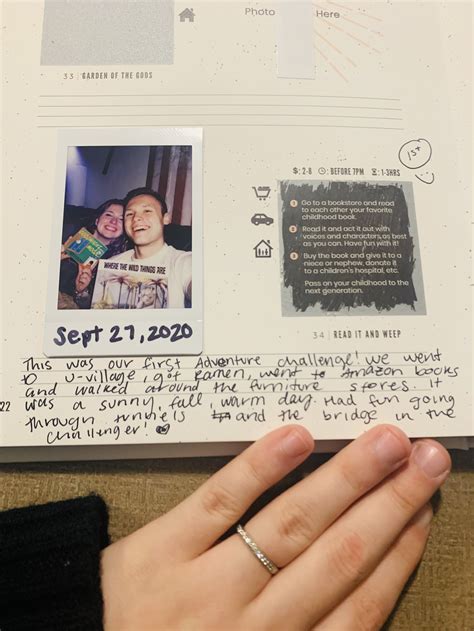 Photo Here
33 | GARDEN OF THE GODS
1st
$: 2-8 BEFORE 7PM 1-3HRS
1 Go to a bookstore and read
to each other your favorite
childhood book.
2 Read it and act it out with
voices and characters, as best
as you can. Have fun with it!
3 Buy the book and give it to a
niece or nephew, donate it
to a children's hospital, etc.
Pass on your childhood to
the next generation.
WHERE THE WILD THINGS ARE
Sept 27, 2020
34 | READ IT AND WEEP
This was our first Adventure challenge! we went
to U-village, got Ramen, went to Amazon books
and walked around the furniture stores. It
22 was a sunny fall, warm day. Had fun going
through tunnels and the bridge in the
challenger!